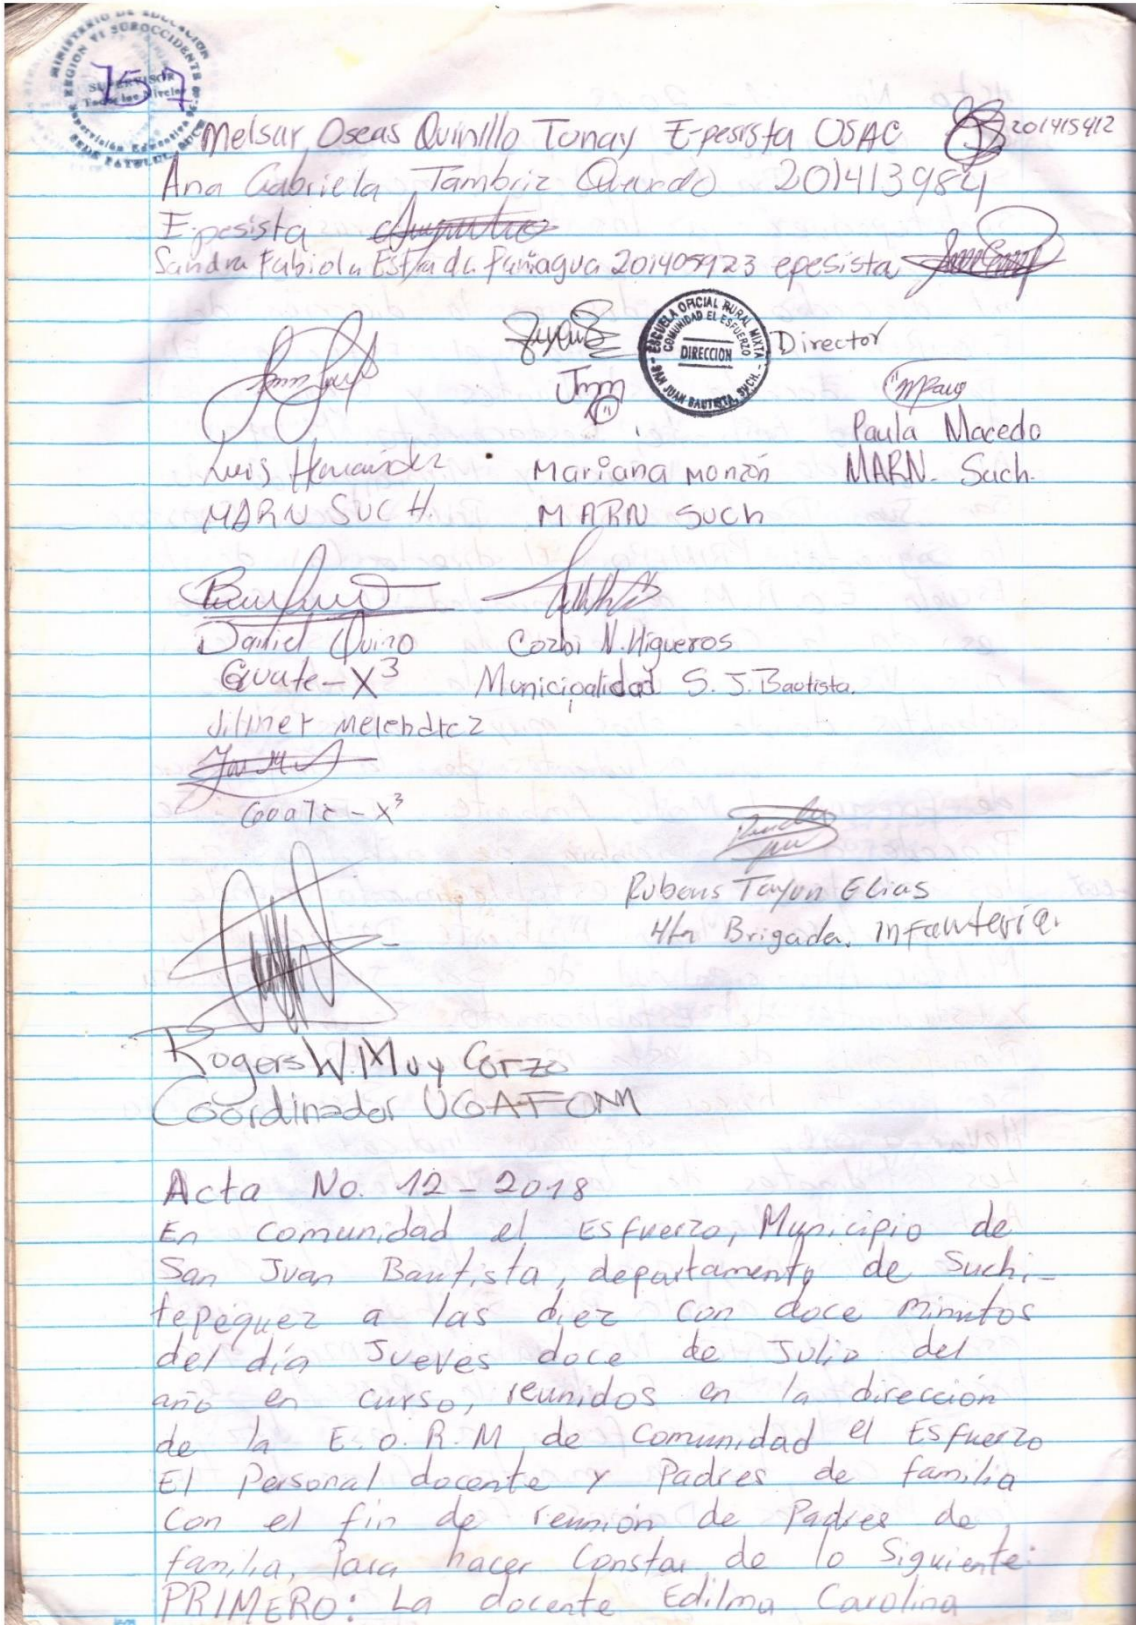 MINISTERIO DE EDUCACIÓN
REGION VI SUROCCIDENTE
SUPERVISOR
Todos los Niveles
Supervisión Educativa
SEDE PATULUL, SUCH.
157
Melsar Oseas Quinillo Tonay E-pesista USAC 201415412
Ana Gabriela Tambriz 201413984
E-pesista
Sandra Fabiola Estrada Paniagua 201405923 epesista
ESCUELA OFICIAL RURAL MIXTA
COMUNIDAD EL ESFUERZO
DIRECCION
SAN JUAN BAUTISTA, SUCH.
Director
Paula Macedo
Luis Hernández Mariana Monzón MARN. Such.
MARN SUCH. MARN Such
Daniel Quiro Cozbi N. Higueros
Guate-X3 Municipalidad S. J. Bautista.
Jilmer Melendrez
Guate-X3
Rubens Tayun Elias
4ta Brigada. Infanteria.
Rogers W. Muy Corzo
Coordinador UGAFOM
Acta No. 12-2018
En comunidad el Esfuerzo, Municipio de
San Juan Bautista, departamento de Suchi-
tepéquez a las diez con doce minutos
del día Jueves doce de Julio del
año en curso, reunidos en la dirección
de la E.O.R.M de Comunidad el Esfuerzo
El Personal docente y Padres de familia
con el fin de reunión de Padres de
familia, Para hacer Constar de lo Siguiente:
PRIMERO: La docente Edilma Carolina